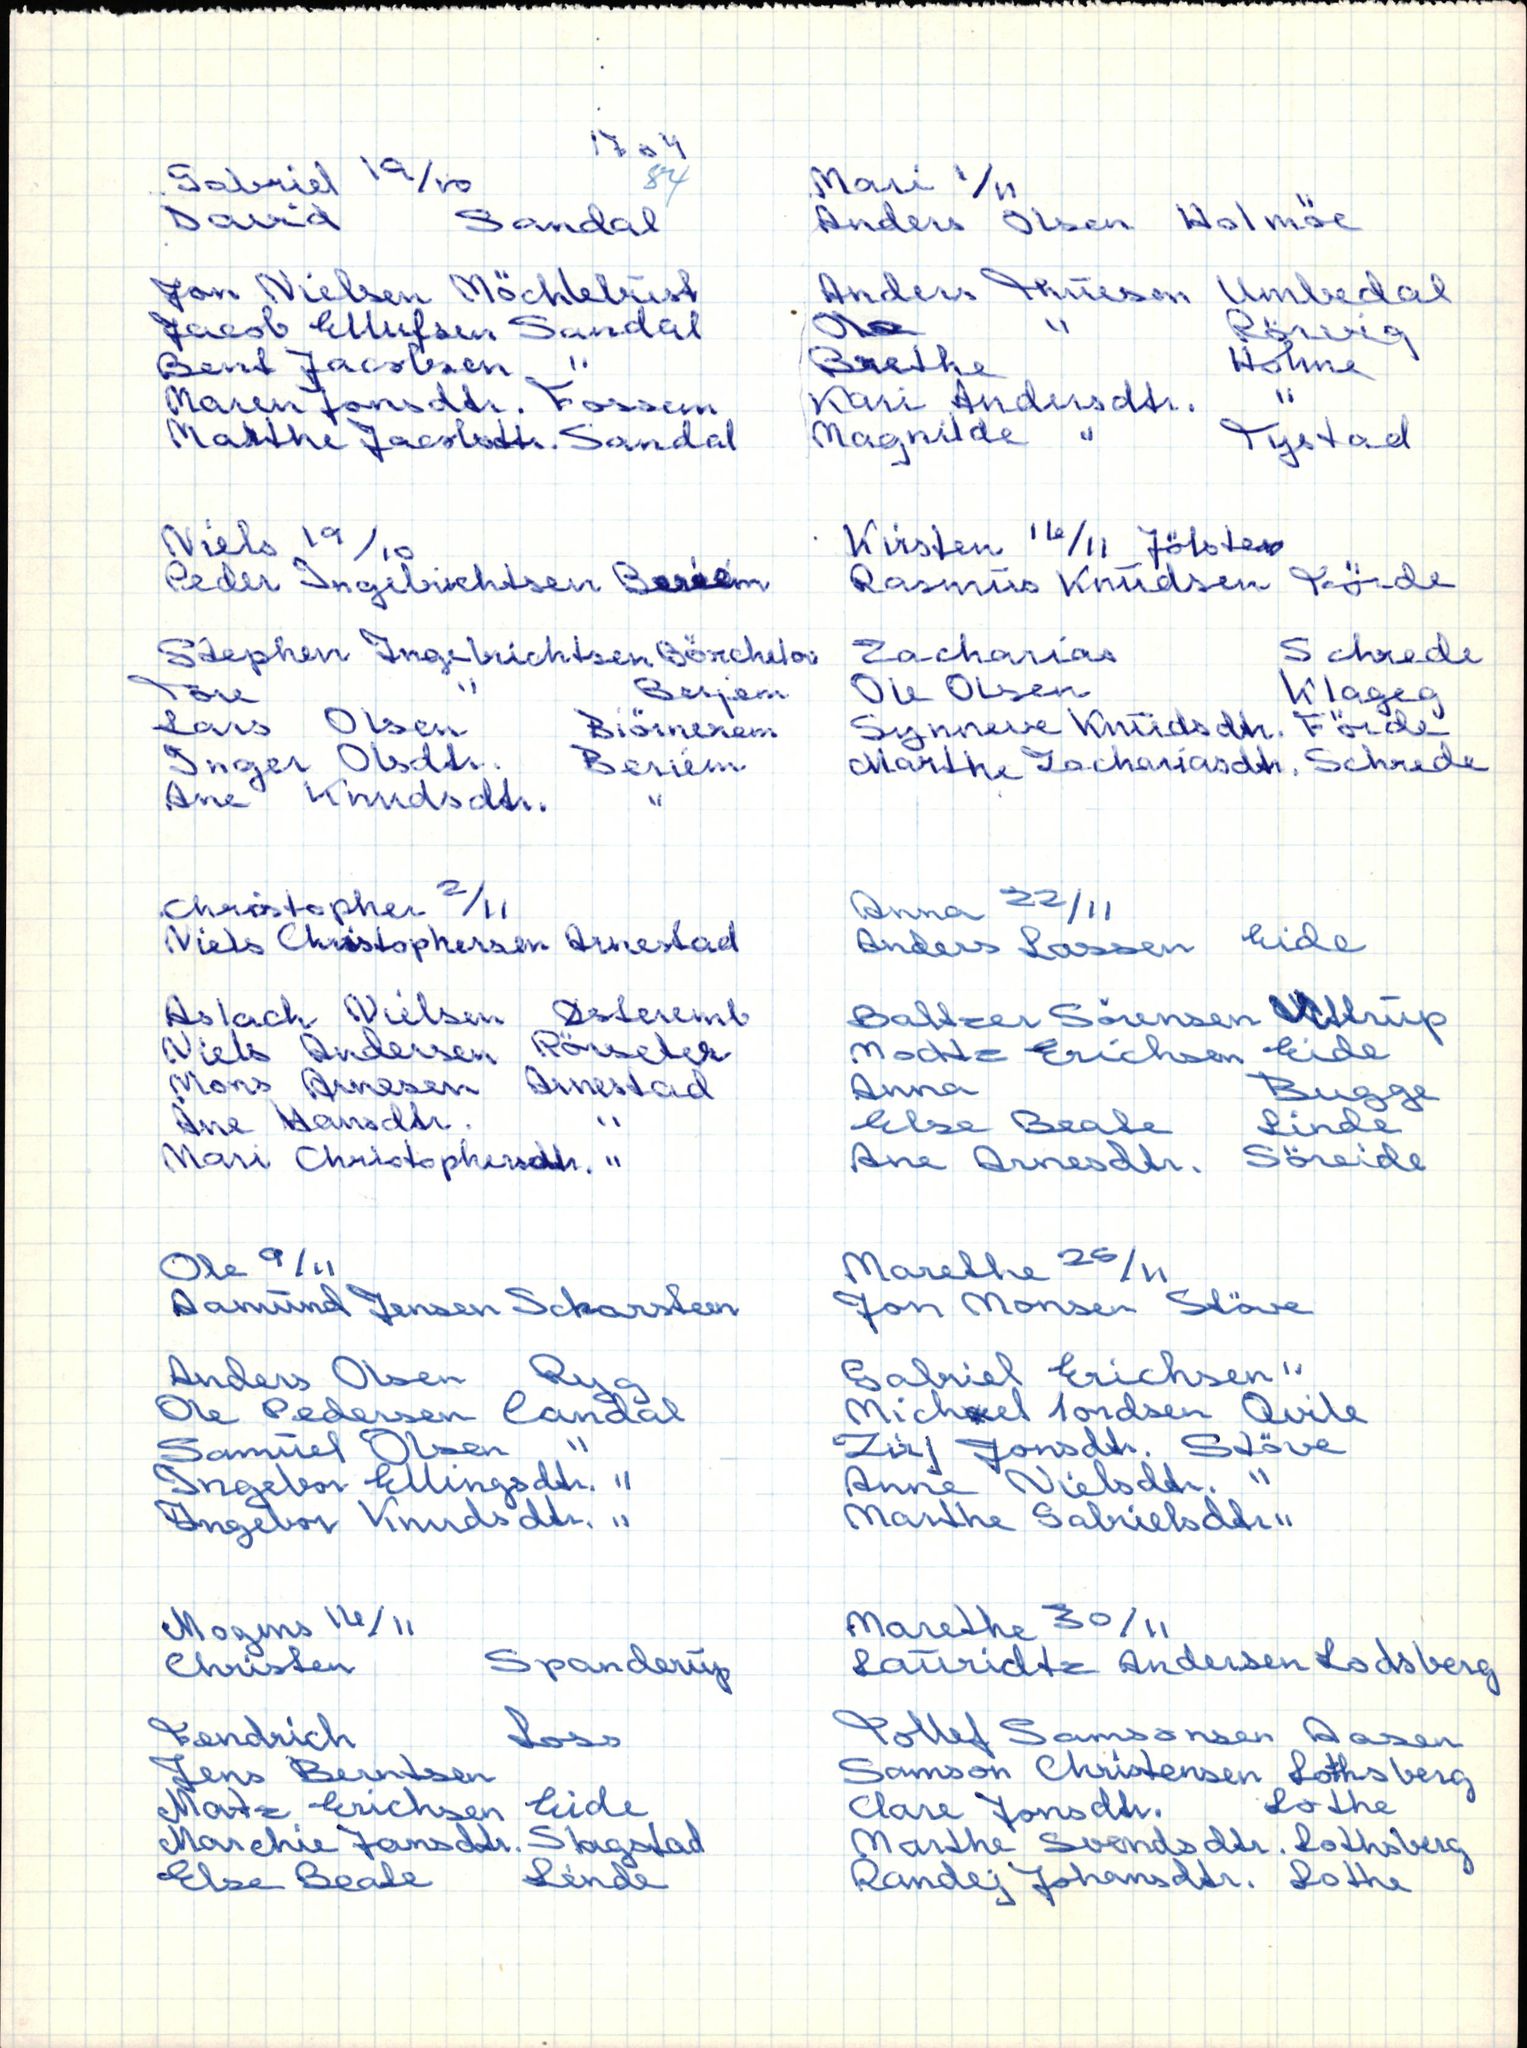 1704
84
Gabriel 19/10
David Sandal
Jon Nielsen Möchlebust
Jacob Ellufsen Sandal
Bent Jacobsen "
Maren Jonsdtr. Fossem
Marthe Jacobsdtr. Sandal
Niels 19/10
Peder Ingebrichtsen Beriem
Stephen Ingebrichtsen Börchelos
Tore " Berjem
Lars Olsen Biörnerem
Inger Olsdtr. Beriem
Ane Knudsdtr. "
Christopher 2/11
Niels Christophersen Arnestad
Aslach Nielsen Østeremb
Niels Andersen Rörseter
Mons Arnesen Arnestad
Ane Hansdtr. "
Mari Christophersdtr. "
Ole 9/11
Aamund Jensen Scharsteen
Anders Olsen Ryg
Ole Pedersen Candal
Samuel Olsen "
Ingebor Ellingsdtr. "
Ingebor Knudsdtr. "
Mogens 16/11
Christen Spanderup
Fendrich Loss
Jens Berntsen
Matz Erichsen Eide
Marchie Jansdtr. Stagstad
Else Beate Linde
Mari 1/11
Anders Olsen Holmöe
Anders Thuesen Umbedal
Ole " Rörvig
Brethe Hohne
Kari Andersdtr. "
Magnilde " Tystad
Kirsten 16/11 Jölster
Rasmus Knudsen Förde
Zacharias Schrede
Ole Olsen Klageg
Synneve Knudsdtr. Förde
Marthe Zachariasdtr. Schrede
Anna 22/11
Anders Lassen Eide
Baltzer Sörensen Vittrup
Mochtz Erichsen Eide
Anna Bugge
Else Beate Linde
Ane Arnesdtr. Söreide
Marethe 25/11
Jon Monsen Stöve
Gabriel Erichsen "
Michael Iordsen Qvile
Zirj Jonsdtr. Stöve
Anne Nielsdtr. "
Marthe Gabrielsdtr "
Marethe 30/11
Lauridtz Andersen Lodsberg
Tollef Samsonsen Aasen
Samson Christensen Lothsberg
Clare Jonsdtr. Lothe
Marthe Svendsdtr. Lothsberg
Randej Johansdtr. Lothe